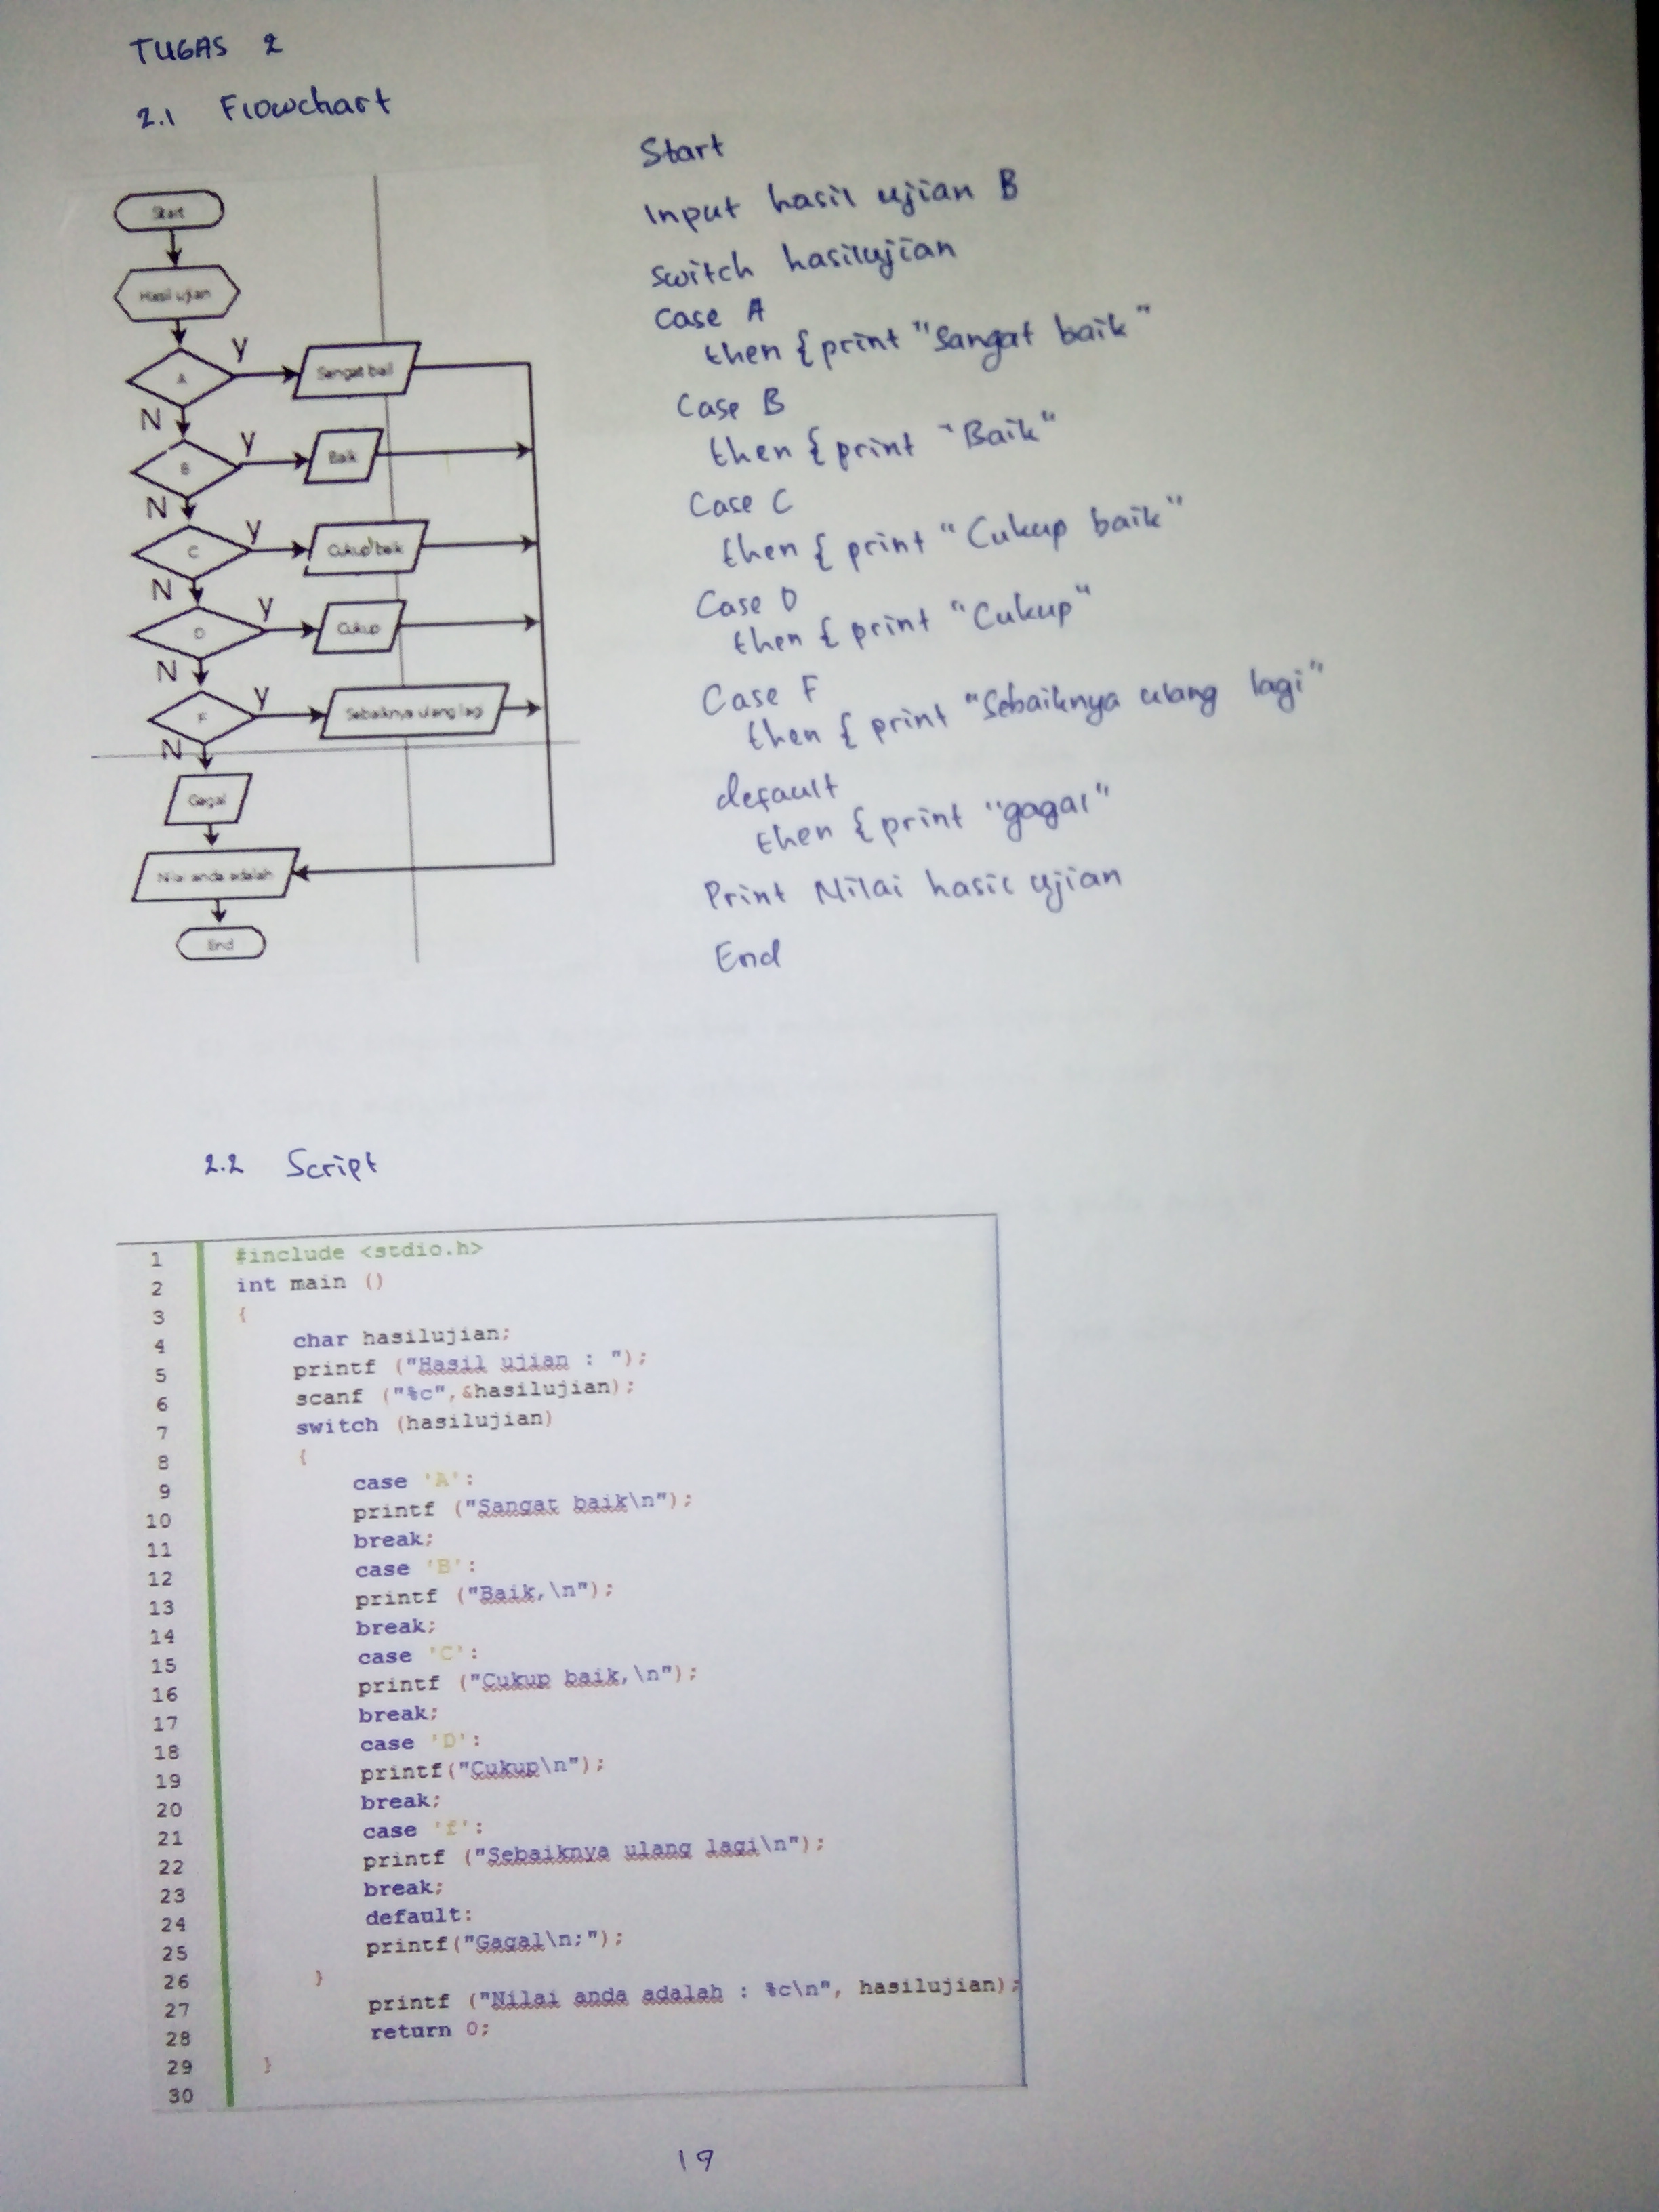 TUGAS 2
2.1 Flowchart
Start
Hasil ujian
A
Y
Sangat bail
N
B
Y
Baik
N
C
Y
Cukup baik
N
D
Y
Cukup
N
F
Y
Sebaiknya ulang lagi
N
Gagal
Nilai anda adalah
End
Start
Input hasil ujian B
Switch hasilujian
Case A
then { print "Sangat baik"
Case B
then { print "Baik"
Case C
then { print "Cukup baik"
Case D
then { print "Cukup"
Case F
then { print "Sebaiknya ulang lagi"
default
then { print "gagal"
Print Nilai hasil ujian
End
2.2 Script
1 #include <stdio.h>
2 int main ()
3 {
4 char hasilujian;
5 printf ("Hasil ujian : ");
6 scanf ("%c",&hasilujian);
7 switch (hasilujian)
8 {
9 case 'A':
10 printf ("Sangat baik\n");
11 break;
12 case 'B':
13 printf ("Baik,\n");
14 break;
15 case 'C':
16 printf ("Cukup baik,\n");
17 break;
18 case 'D':
19 printf("Cukup\n");
20 break;
21 case 'f':
22 printf ("Sebaiknya ulang lagi\n");
23 break;
24 default:
25 printf("Gagal\n;");
26 }
27 printf ("Nilai anda adalah : %c\n", hasilujian);
28 return 0;
29 }
30
19